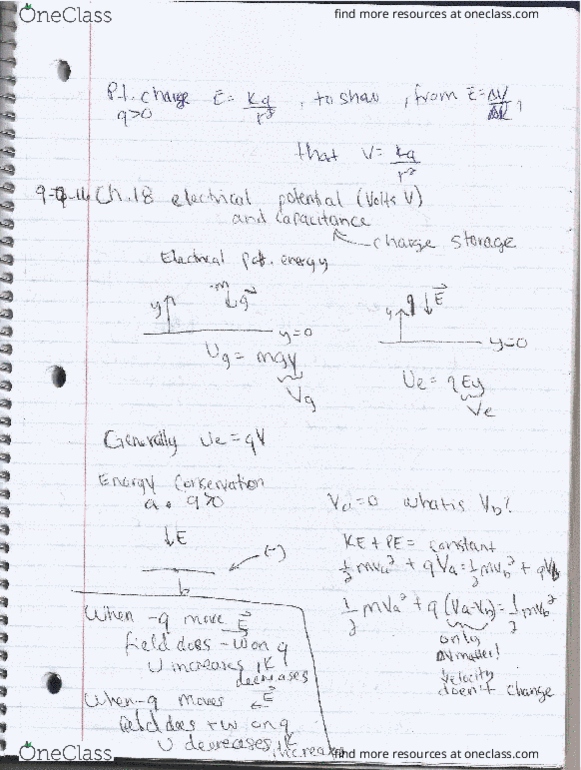 OneClass
find more resources at oneclass.com
Pt. charge E = Kq/r² , to show , from E = ΔV/ΔR ,
q>0
that V = kq/r²
Ch.18 electrical potential (Volts V)
and capacitance
charge storage
Electrical pot. energy
m g
q ↓ E
y
y
y=0
y=0
Ug = mgy
Ue = qEy
Vg
Ve
Generally Ue = qV
Energy Conservation
a q>0
Va=0 what is Vb?
↓E
(-)
b
KE + PE = constant
½mva² + qVa = ½mvb² + qVb
½mva² + q(Va-Vb) = ½mvb²
only
ΔV matter!
velocity
doesn't change
When -q move E
field does -W on q
U increases, K
decreases
When -q moves E
field does +W on q
U decreases, K increases
OneClass
find more resources at oneclass.com